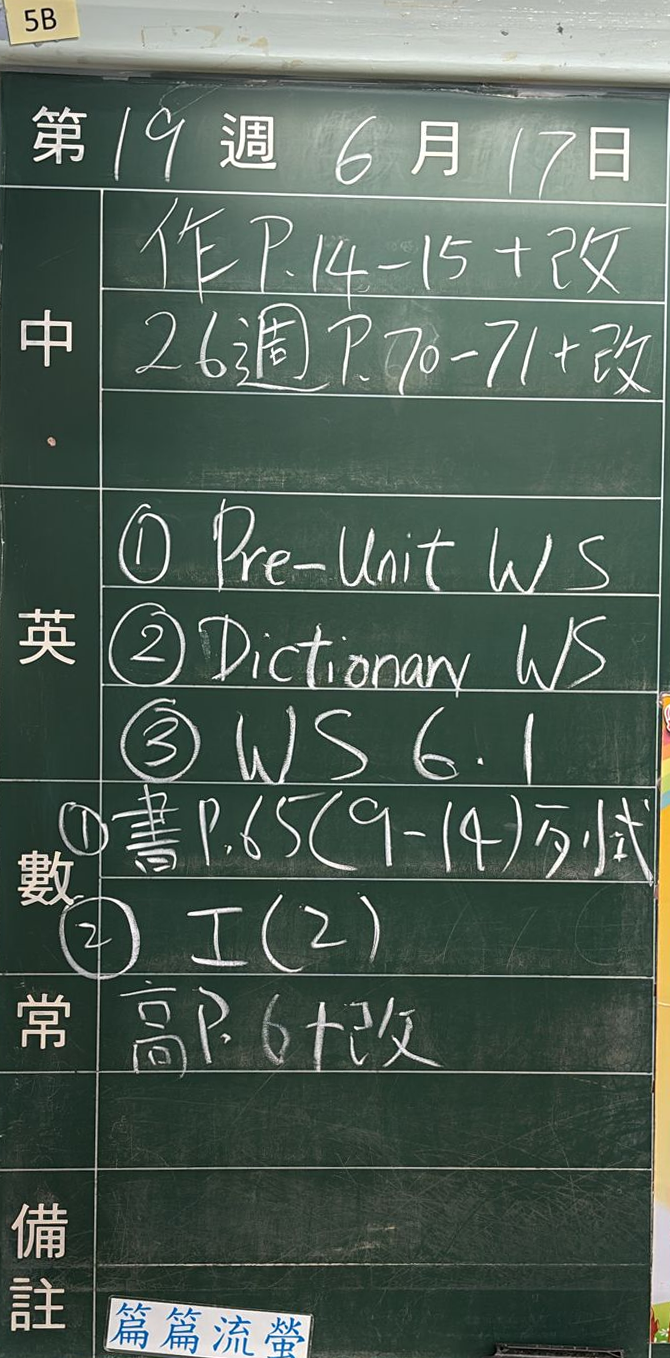 5B
第19週 6月17日
中
作P.14-15+改
26週P.70-71+改
英
① Pre-Unit WS
② Dictionary WS
③ WS 6.1
數
①書P.65(9-14)列式
② 工(2)
常
高P.6+改
備註
篇篇流螢